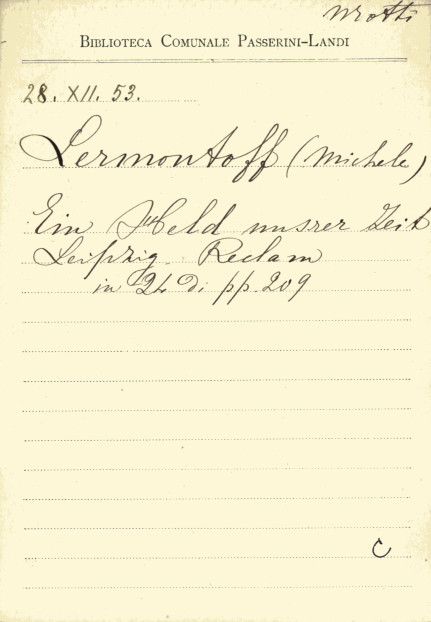 Mrotti
BIBLIOTECA COMUNALE PASSERINI-LANDI
28. XII. 53.
Lermontoff (Michele)
Ein Held unsrer Zeit
Leipzig. Reclam
in 24 Di pp. 209
C